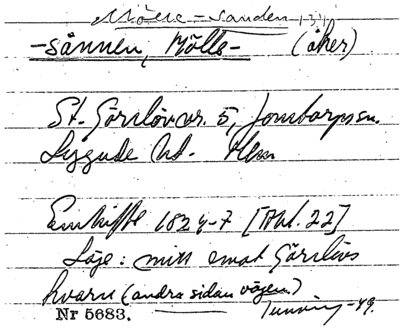 Mölle-sanden 1:31
-sännen, Mölle- (åker)
St. Görslöv nr. 5, Jonstorp sn.
Luggude hd. Mlm
Enskifte 1824-7 [Akt. 22]
Läge: mitt emot Görslövs
kvarn (andra sidan vägen)
Tuneving -49.
Nr 5683.